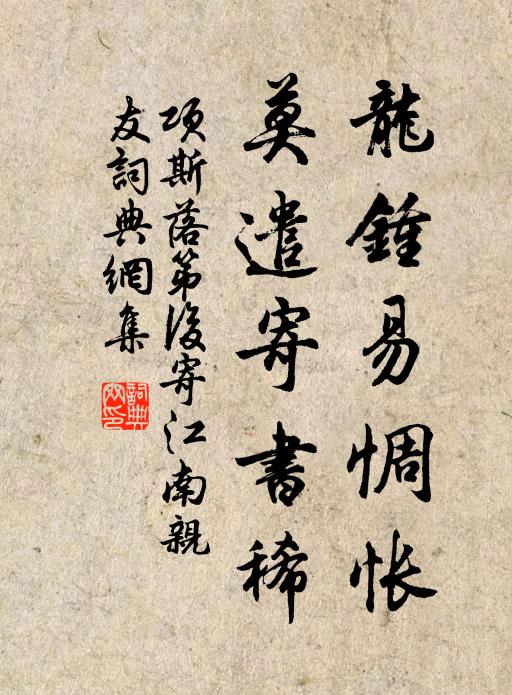 龍鍾易惆悵
莫遣寄書稀
項斯落第後寄江南親
友詞典網集
詞典
网印